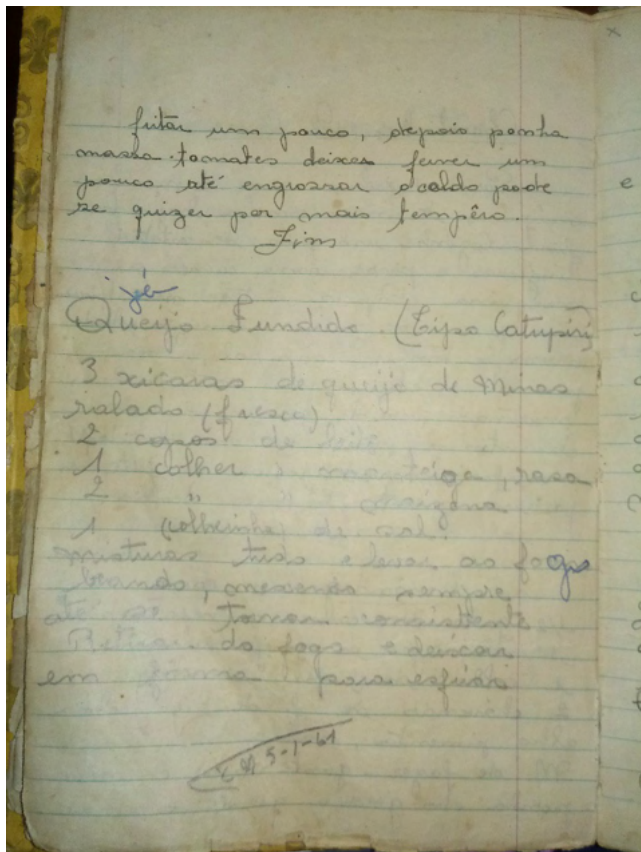 fritar um pouco, depois ponha
massa tomates deixes ferver um
pouco até engrossar o caldo pode
se quizer por mais tempêro.
Fim
já
Queijo Fundido. (Tipo Catupiri)
3 xicaras de queijo de Minas
ralado (fresco)
2 copos de leite
1 colher " manteiga, rasa
2 " " maizena
1 (colherinha) de sal.
misturar tudo e levar ao fogo
brando, mexendo sempre
até se tornar consistente
Retirar do fogo e deixar
em fôrma para esfriar
5-1-61